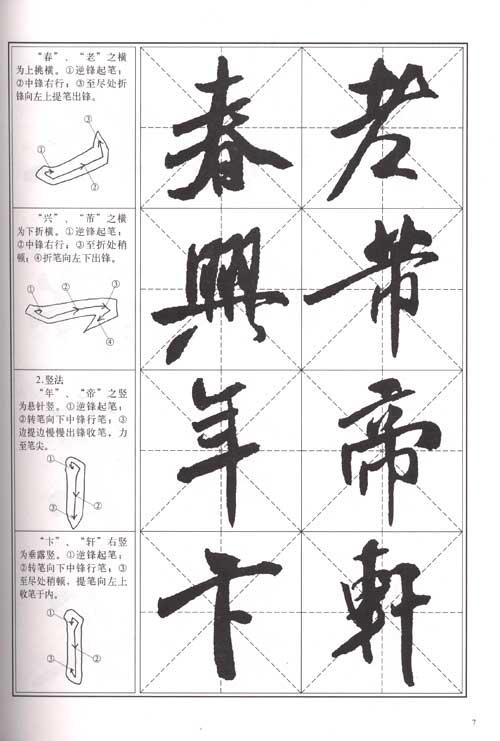 “春”、“老”之横
为上挑横。①逆锋起笔；
②中锋右行；③至尽处折
锋向左上提笔出锋。
①
②
③
春 老
“兴”、“芾”之横
为下折横。①逆锋起笔；
②中锋右行；③至折处稍
顿；④折笔向左下出锋。
①
②
③
④
興 芾
2.竖法
“年”、“帝”之竖
为悬针竖。①逆锋起笔；
②转笔向下中锋行笔；③
边提边慢慢出锋收笔，力
至笔尖。
①
②
③
年 帝
“卞”、“轩”右竖
为垂露竖。①逆锋起笔；
②转笔向下中锋行笔；③
至尽处稍顿，提笔向左上
收笔于内。
①
②
③
卞 軒
7